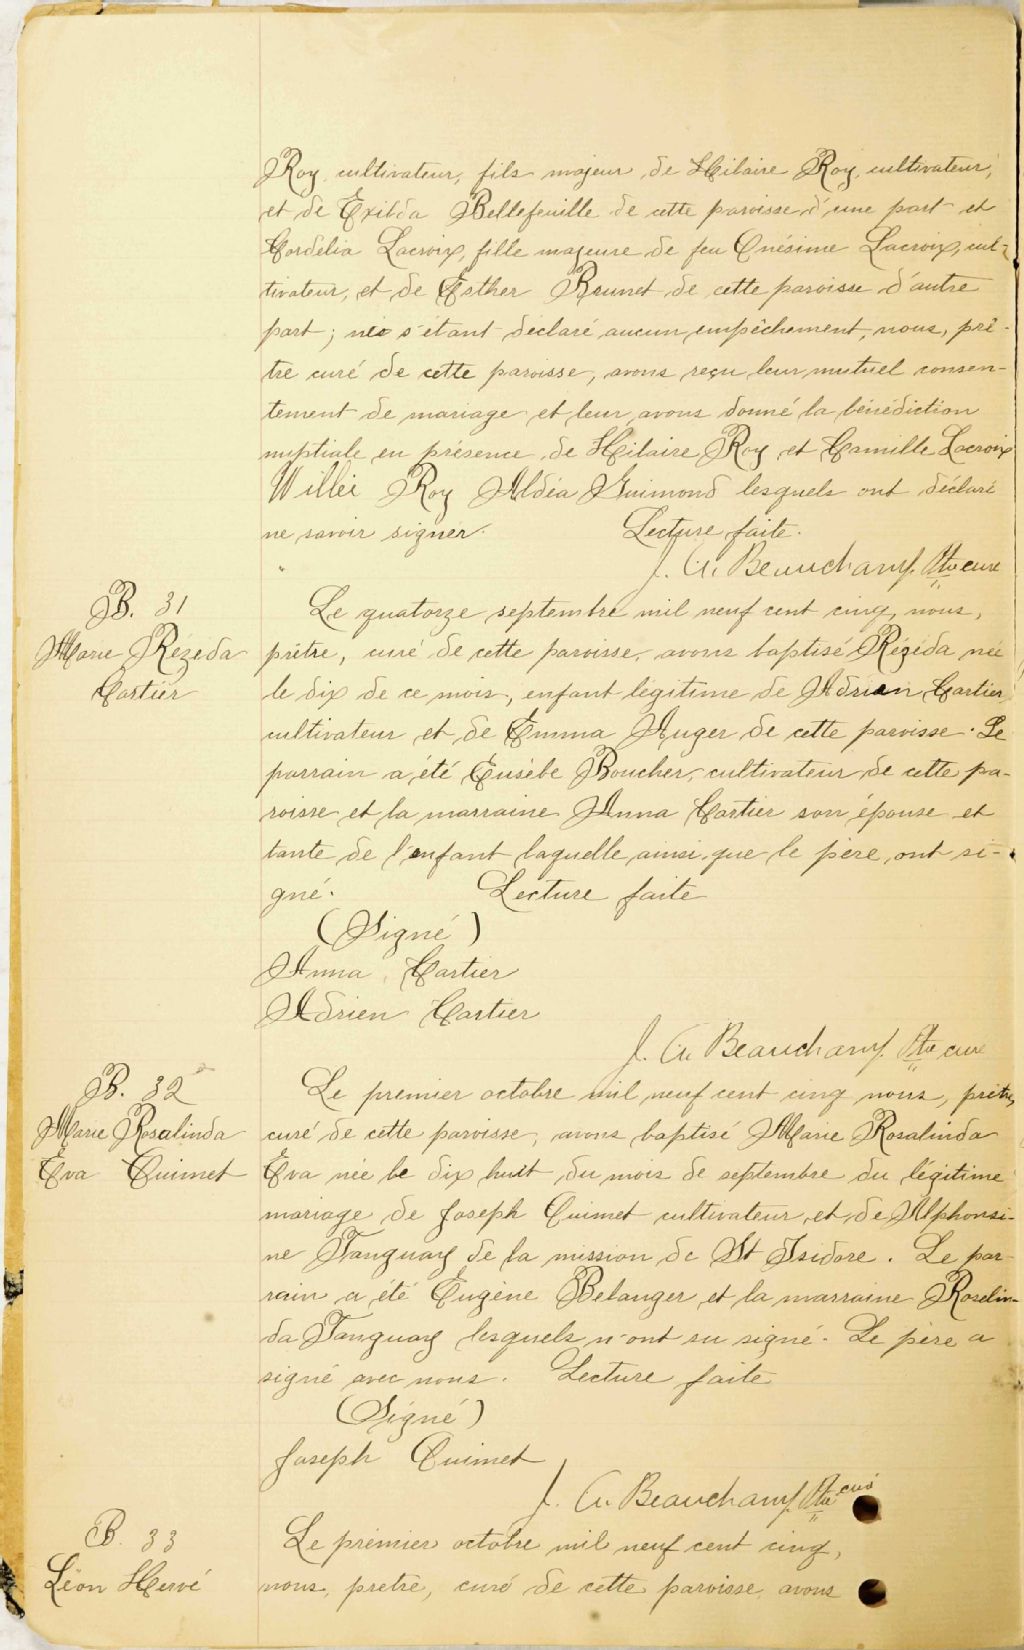 Roy, cultivateur, fils majeur de Hilaire Roy, cultivateur,
et de Exilda Bellefeuille de cette paroisse d'une part et
Cordélia Lacroix, fille majeure de feu Onésime Lacroix, cul-
tivateur, et de Esther Brunet de cette paroisse d'autre
part; ne s'étant déclaré aucun empêchement, nous, prê-
tre curé de cette paroisse, avons reçu leur mutuel consen-
tement de mariage et leur avons donné la bénédiction
nuptiale en présence de Hilaire Roy et Camille Lacroix
Willie Roy Aldéa Guimond lesquels ont déclaré
ne savoir signer. Lecture faite.
J. A. Beauchamp Ptre curé
B. 31
Marie Rézéda
Cartier
Le quatorze septembre mil neuf cent cinq, nous,
prêtre, curé de cette paroisse, avons baptisé Rézéda née
le dix de ce mois, enfant légitime de Adrien Cartier,
cultivateur et de Emma Auger de cette paroisse. Le
parrain a été Eusèbe Boucher, cultivateur de cette pa-
roisse et la marraine Anna Cartier son épouse et
tante de l'enfant laquelle ainsi que le père ont si-
gné. Lecture faite
(Signé)
Anna Cartier
Adrien Cartier
J. A. Beauchamp Ptre curé
B. 32
Marie Rosalinda
Éva Ouimet
Le premier octobre mil neuf cent cinq nous, prêtre,
curé de cette paroisse, avons baptisé Marie Rosalinda
Éva née le dix huit du mois de septembre du légitime
mariage de Joseph Ouimet cultivateur et de Alphonsi-
ne Tanguay de la mission de St Isidore. Le par-
rain a été Eugène Belanger et la marraine Roselin-
da Tanguay lesquels n'ont su signé. Le père a
signé avec nous. Lecture faite
(Signé)
Joseph Ouimet
J. A. Beauchamp Ptre curé
B. 33
Léon Hervé
Le premier octobre mil neuf cent cinq,
nous, prêtre, curé de cette paroisse, avons